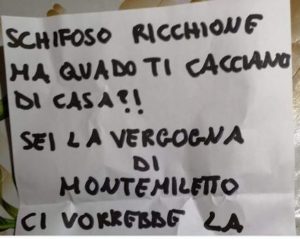 SCHIFOSO RICCHIONE
MA QUADO TI CACCIANO
DI CASA?!
SEI LA VERGOGNA
DI
MONTEMILETTO
CI VORREBBE LA